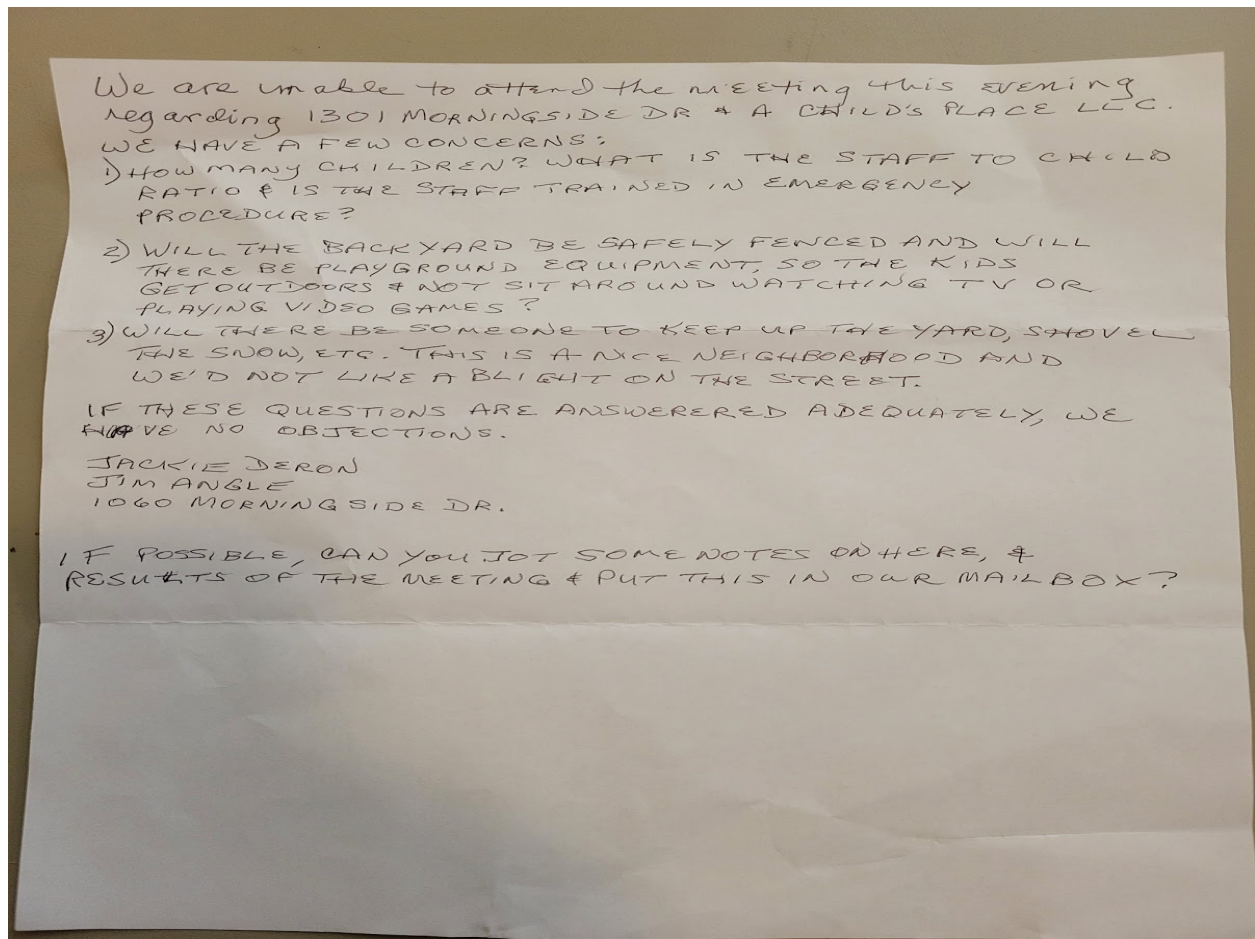 We are unable to attend the meeting this evening
regarding 1301 MORNINGSIDE DR & A CHILD'S PLACE LLC.
WE HAVE A FEW CONCERNS:
1) HOW MANY CHILDREN? WHAT IS THE STAFF TO CHILD
RATIO & IS THE STAFF TRAINED IN EMERGENCY
PROCEDURE?
2) WILL THE BACKYARD BE SAFELY FENCED AND WILL
THERE BE PLAYGROUND EQUIPMENT, SO THE KIDS
GET OUTDOORS & NOT SIT AROUND WATCHING TV OR
PLAYING VIDEO GAMES?
3) WILL THERE BE SOMEONE TO KEEP UP THE YARD, SHOVEL
THE SNOW, ETC. THIS IS A NICE NEIGHBORHOOD AND
WE'D NOT LIKE A BLIGHT ON THE STREET.
IF THESE QUESTIONS ARE ANSWERERED ADEQUATELY, WE
HAVE NO OBJECTIONS.
JACKIE DERON
JIM ANGLE
1060 MORNINGSIDE DR.
IF POSSIBLE, CAN YOU JOT SOME NOTES ON HERE, &
RESULTS OF THE MEETING & PUT THIS IN OUR MAILBOX?